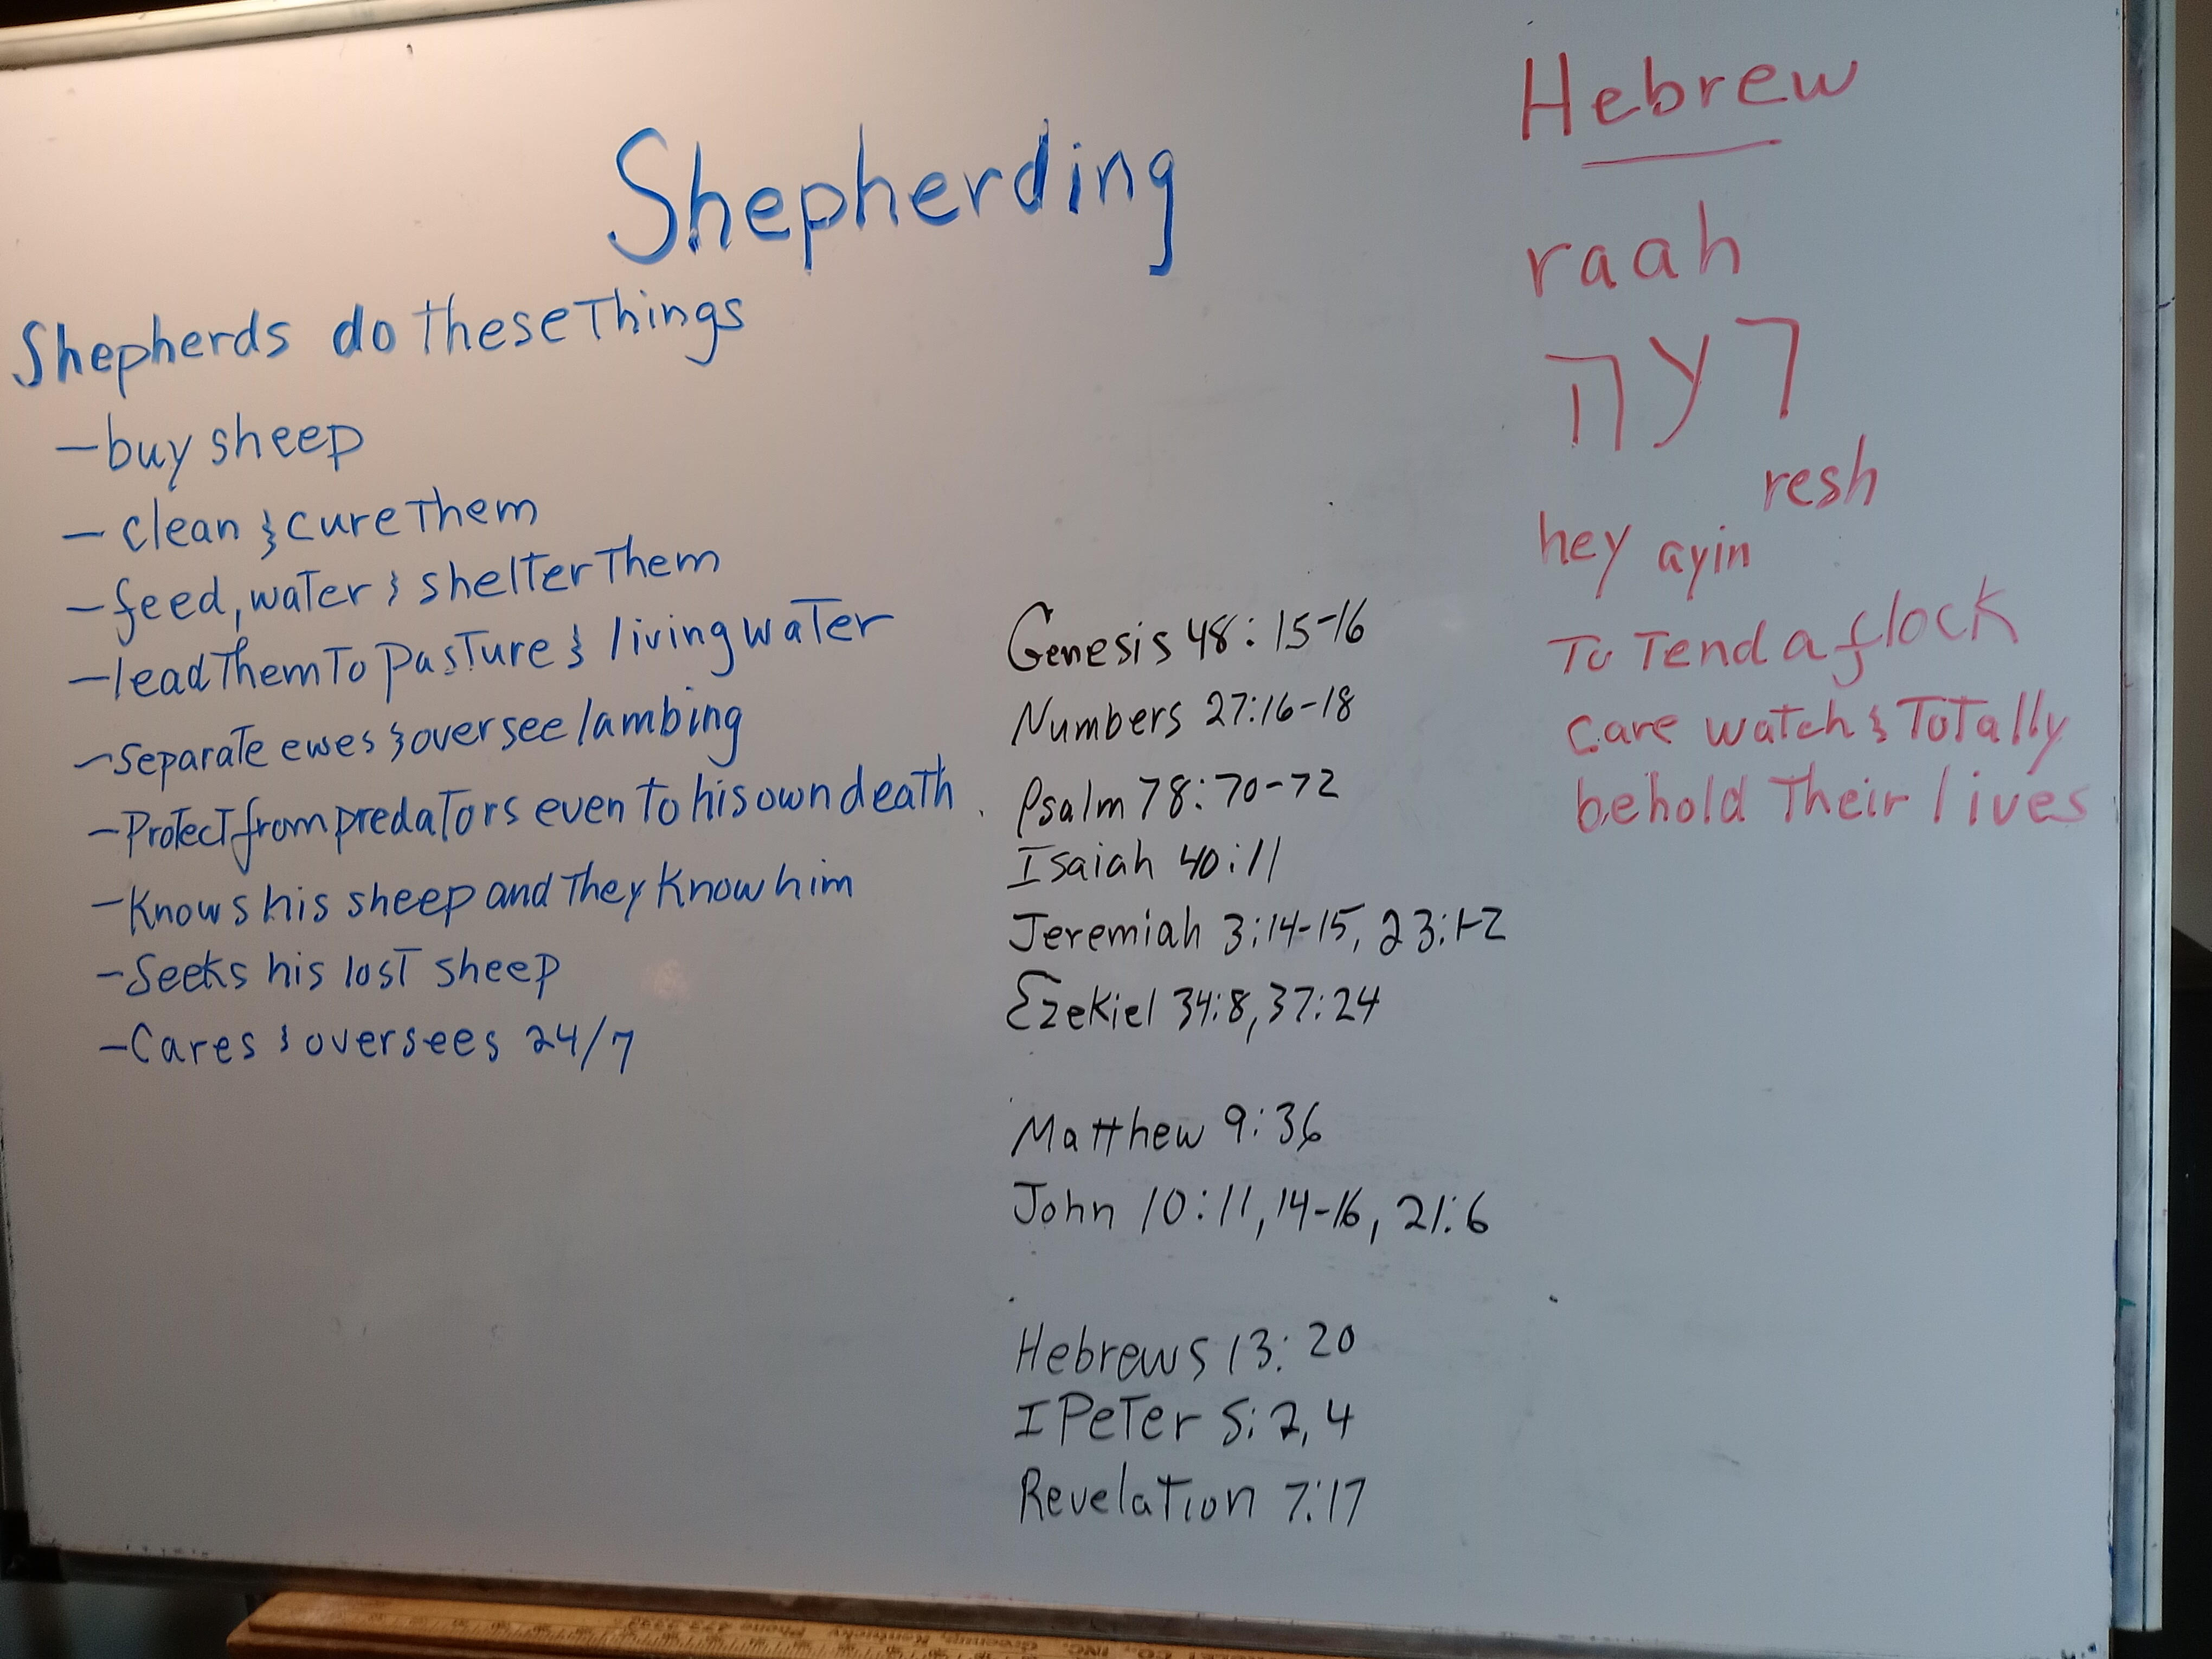 Shepherding
Shepherds do these Things
- buy sheep
- clean & cure Them
- feed, water & shelter Them
- lead Them To pasture & living water
- Separate ewes & oversee lambing
- Protect from predators even to his own death.
- Knows his sheep and They Know him
- Seeks his lost sheep
- Cares & oversees 24/7
Genesis 48:15-16
Numbers 27:16-18
Psalm 78:70-72
Isaiah 40:11
Jeremiah 3:14-15, 23:1-2
Ezekiel 34:8, 37:24
Matthew 9:36
John 10:11, 14-16, 21:6
Hebrews 13:20
I Peter 5:2, 4
Revelation 7:17
Hebrew
raah
רעה
resh
hey ayin
To Tend a flock
care watch & Totally
behold Their lives